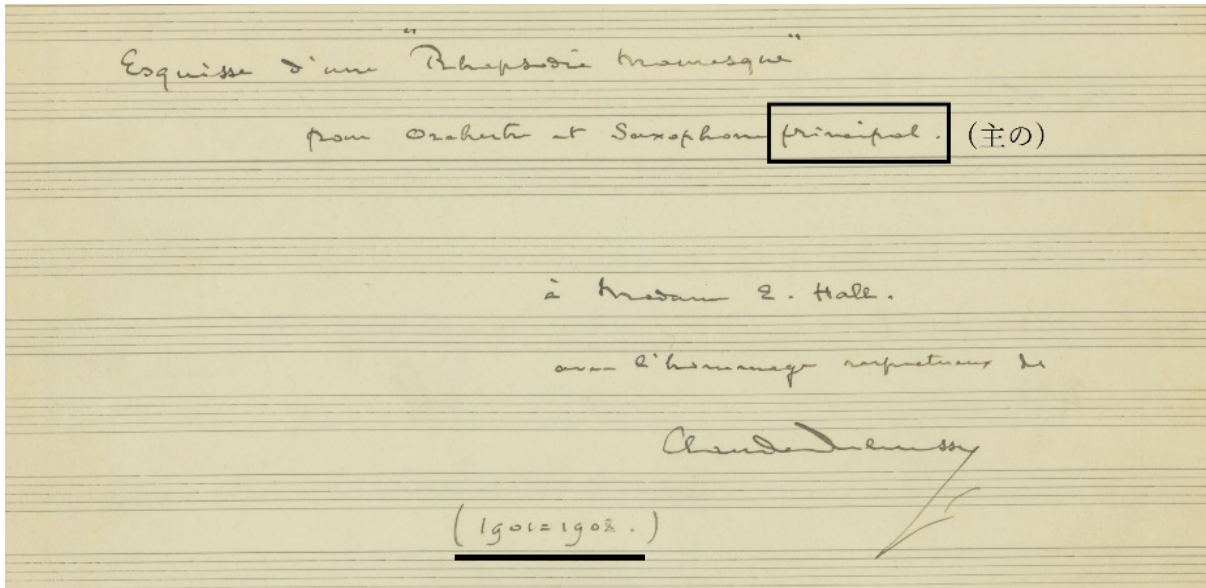 Esquisse d'une "Rhapsodie Mauresque"
pour Orchestre et Saxophone principal. (主の)
à Madame E. Hall.
avec l'hommage respectueux de
Claude Debussy
(1901=1908.)